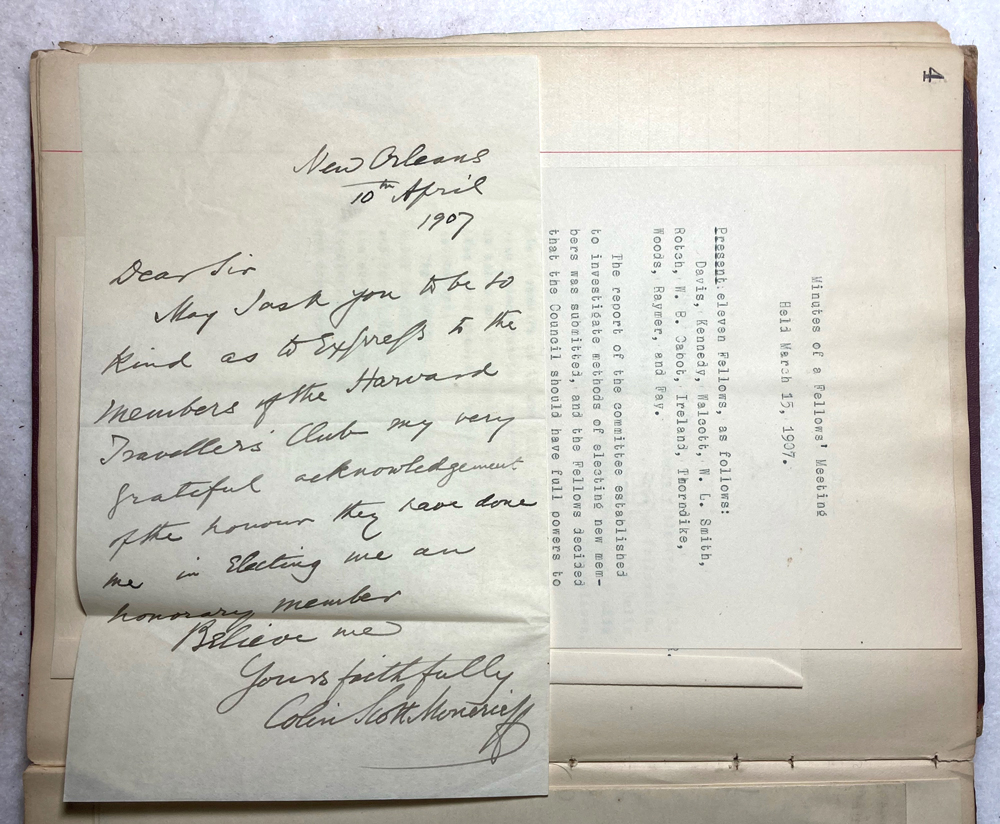 New Orleans
10th April
1907
Dear Sir
May I ask you to be so
kind as to Express to the
members of the Harvard
Travellers' Club my very
grateful acknowledgement
of the honour they have done
me in Electing me an
honorary member
Believe me
Yours faithfully
Colin Scott Moncrieff
4
Minutes of a Fellows' Meeting
Held March 15, 1907.
Present: eleven Fellows, as follows:
Davis, Kennedy, Walcott, W. L. Smith,
Rotch, W. B. Cabot, Ireland, Thorndike,
Woods, Raymer, and Fay.
The report of the committee established
to investigate methods of electing new mem-
bers was submitted, and the Fellows decided
that the Council should have full powers to